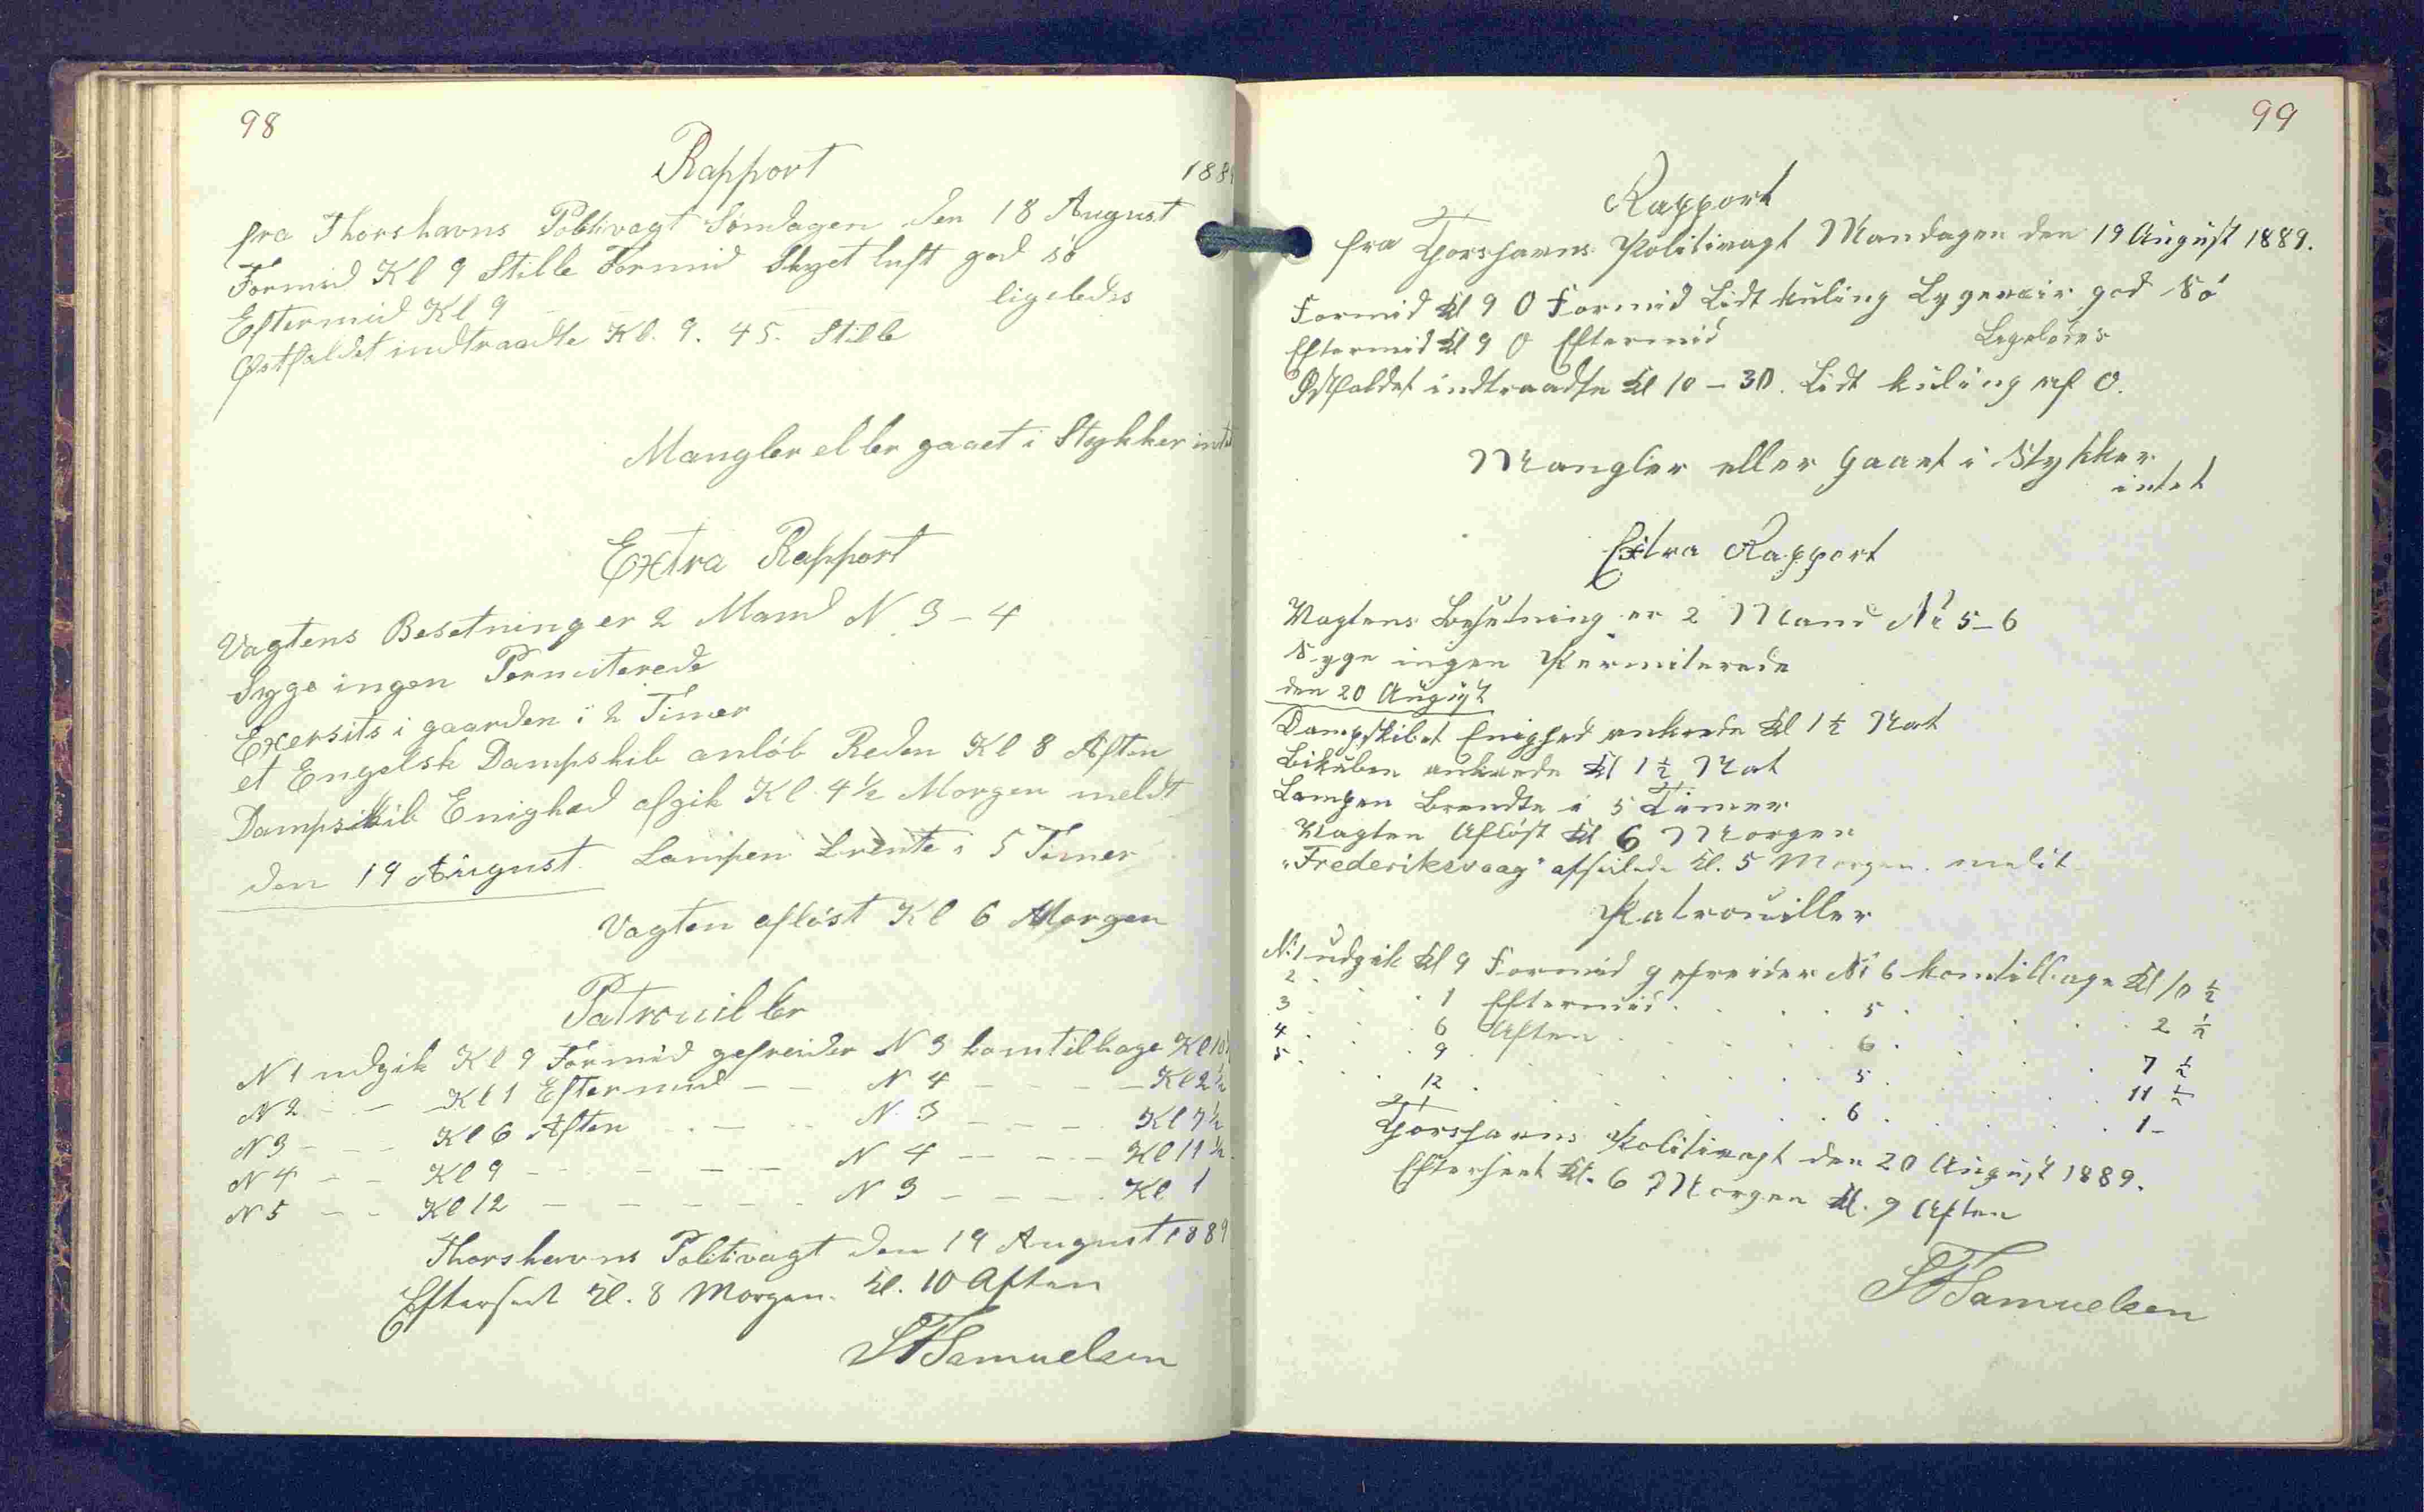 98
Rapport
1889
fra Thorshavns Politivagt Søndagen den 18 August
Formid Kl 9 Stille Formid Skyet luft god sö
Eftermid Kl 9 — — — — ligeledes
Östfaldet indtraadte Kl. 9. 45. Stille
Mangler eller gaaet i Stykker intet
Extra Rapport
Vagtens Besetning er 2 Mand N. 3-4
Syge ingen Permiterede
Exersits i gaarden i 2 Timer
et Engelsk Dampskib anlöb Reden Kl 8 Aften
Dampskib Enighed afgik Kl. 4½ Morgen meldt
den 19 August. Lampen brente i 5 Timer
Vagten aflöst Kl 6 Morgen
Patrouiller
N 1 udgik Kl 9 Formid gefreider N 3 kom tilbage Kl 10½
N 2 — — Kl 1 Eftermid — — N 4 — — — — Kl 2½
N 3 — — — Kl 6 Aften — — — N. 3 — — — Kl 7½
N 4 — — Kl 9 — — — — — N 4 — — — — Kl 11½
N 5 — — Kl 12 — — — — — N 3 — — — Kl 1
Thorshavns Politivagt den 19 August 1889
Efterseet Kl. 8 Morgen. Kl. 10 Aften
SFSamuelsen
99
Rapport
fra Thorshavns Politivagt Mandagen den 19 August 1889.
Formid Kl 9 O Formid Lidt kuling Lygeveir god Sö
Eftermid Kl 9 O Eftermid Legeledes
Östfaldet indtraadte Kl 10 - 30. Lidt kuling af O.
Mangler eller Gaaet i Stykker
intet
Extra Rapport
Vagtens Besetning er 2 Mand No 5-6
Syge ingen Permiterede
den 20 August
Dampskibet Enighed ankrede Kl 1½ Nat
Bikuben ankrede Kl 1½ Nat
Lampen Brendte i 5 Timer
Vagten Aflöst Kl 6 Morgen
"Frederiksvaag" afseilede Kl. 5 Morgen. meldt
Patrouiller
No 1 udgik Kl 9 Formid gefreider No 6 kom tilbage Kl 10½
2 . . . 1 Eftermid . . . . 5 . . . . 2½
3 . . . 6 Aften . . . . 6 . . . . 7½
4 . . . 9 . . . . . 5 . . . . 11½
5 . . . 12 . . . . . 6 . . . . 1-
Thorshavns Politivagt den 20 August 1889.
Efterseet Kl. 6 Morgen Kl. 9 Aften
SFSamuelsen